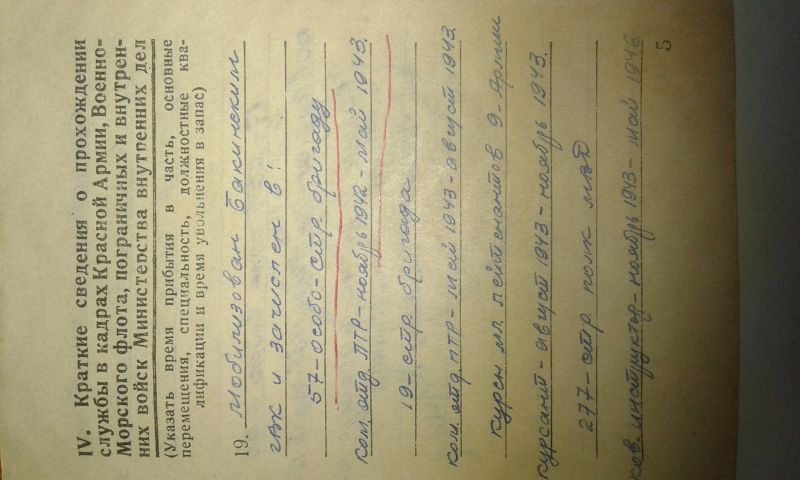 IV. Краткие сведения о прохождении
службы в кадрах Красной Армии, Военно-
Морского флота, пограничных и внутрен-
них войск Министерства внутренних дел
(Указать время прибытия в часть, основные
перемещения, специальность, должностные ква-
лификации и время увольнения в запас)
19. Мобилизован Бакинским
ГВК и зачислен в:
57-особо-стр. бригаду
ком. отд. ПТР-ноябрь 1942-май 1943.
19-стр. бригада
ком. отд. ПТР-май 1943-август 1943.
курсы мл. лейтенантов 9-Армии
курсант-август 1943-ноябрь 1943.
277-стр. полк МВД
ков. инструктор-ноябрь 1943-май 1946.
5